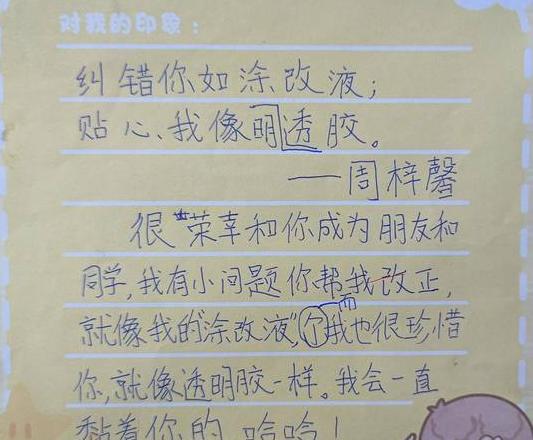 对我的印象：
纠错你如涂改液；
贴心、我像明透胶。
——周梓馨
很荣幸和你成为朋友和
同学,我有小问题你帮我改正,
就像我的"涂改液",个而我也很珍惜
你,就像透明胶一样。我会一直
黏着你的 哈哈！